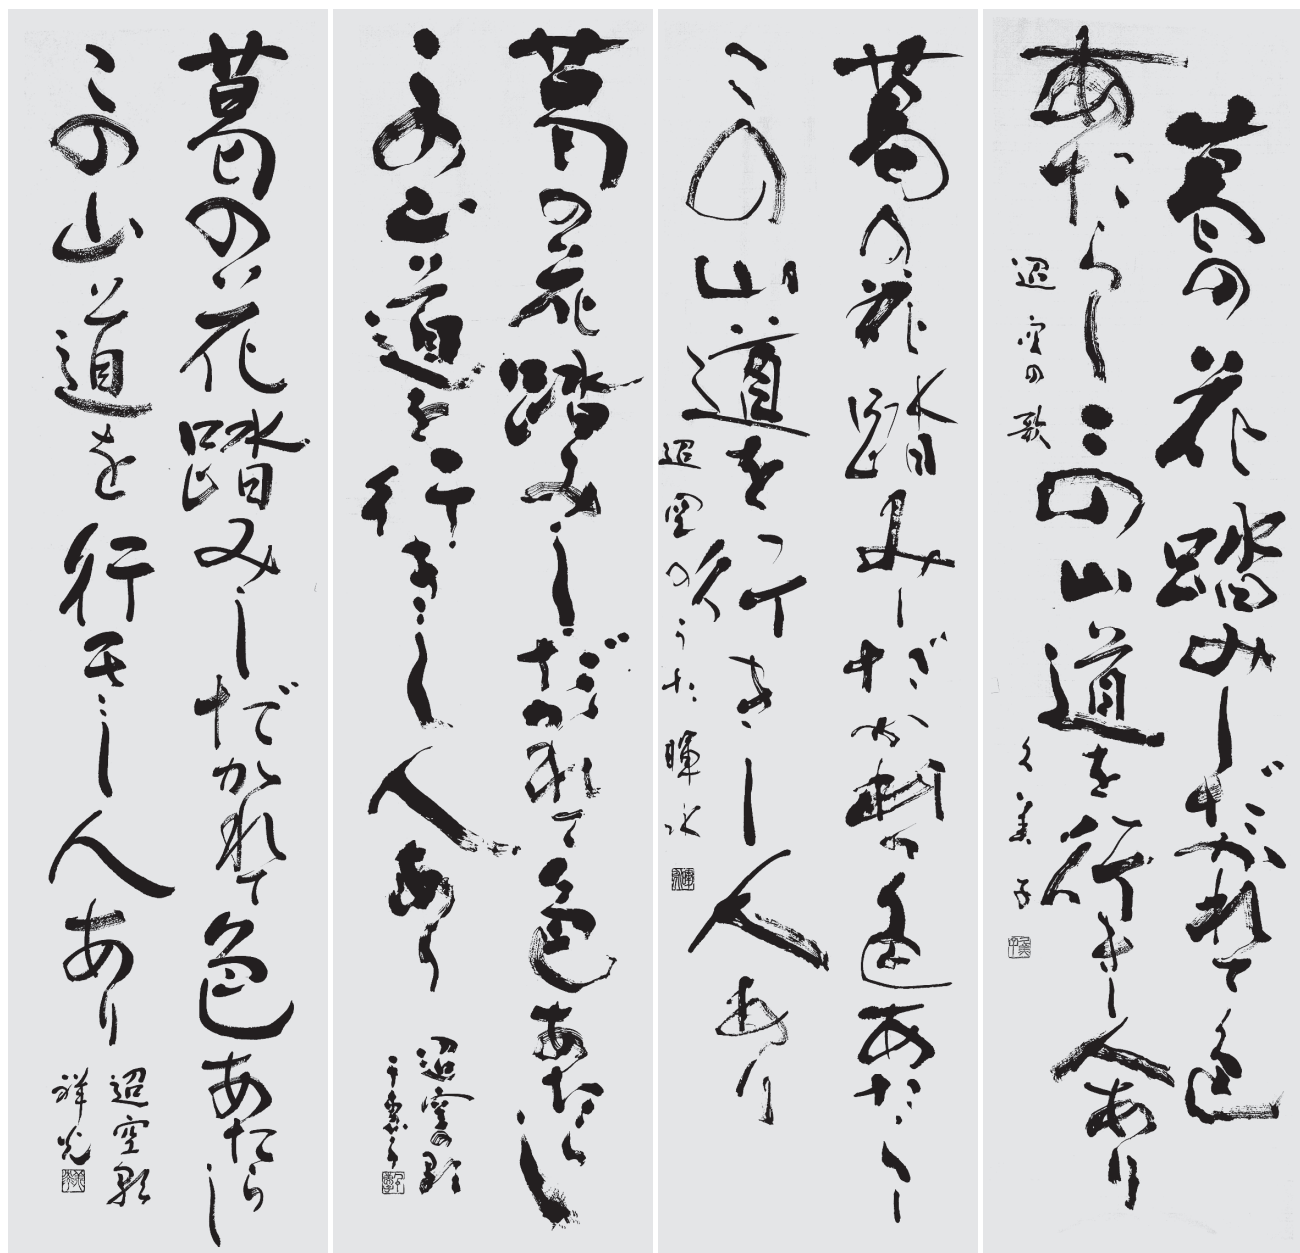 葛の花踏みしだかれて色
あたらしこの山道を行きし人あり
迢空の歌 久美子
葛の花踏みしだかれて色あたらし
この山道を行きし人あり
迢空のうた 暉水
葛の花踏みしだかれて色あたらし
この山道を行きし人あり
迢空の歌
葛の花踏みしだかれて色あたらし
この山道を行きし人あり
迢空歌
祥光